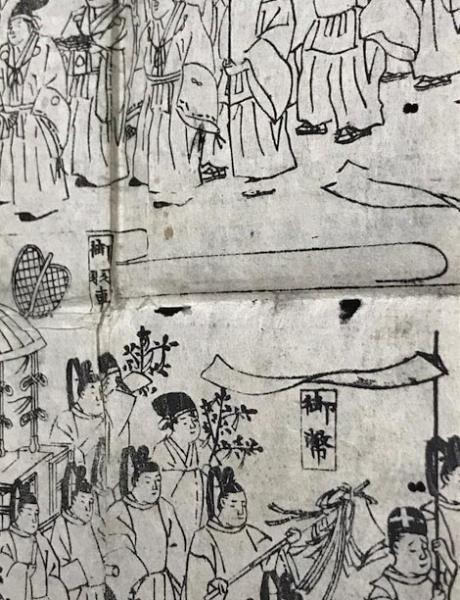 御羽車
御幣